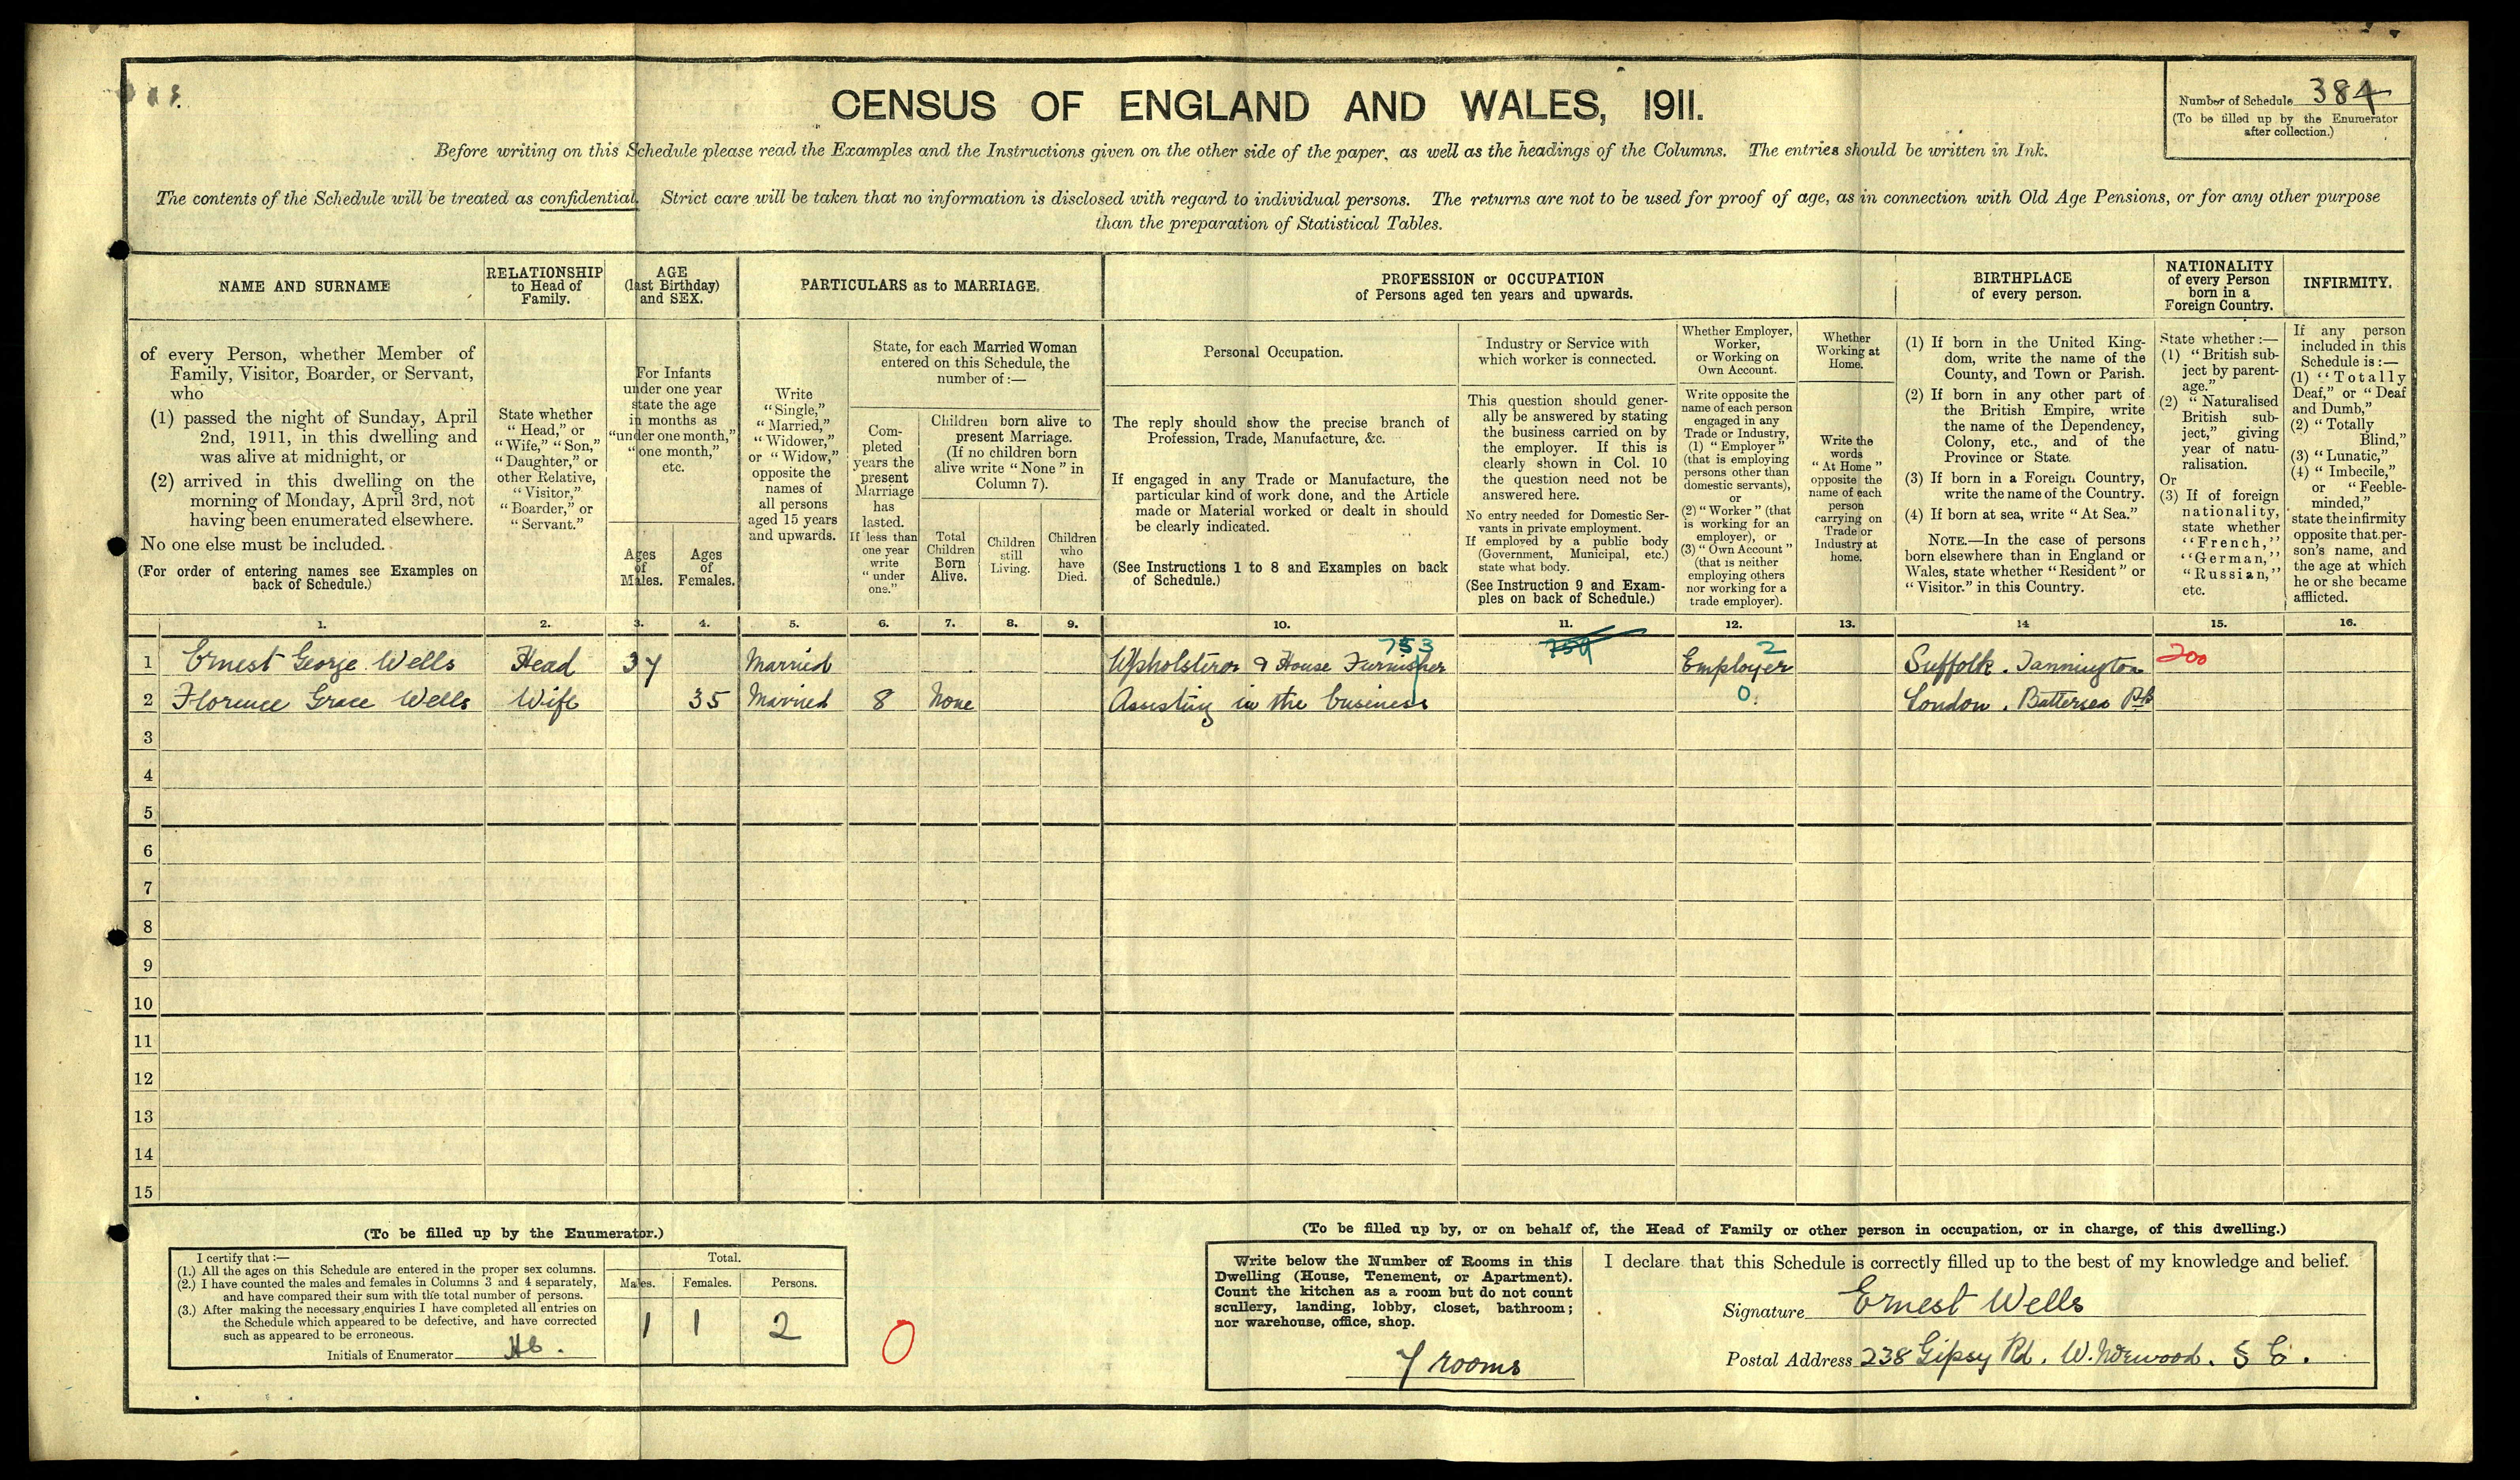 CENSUS OF ENGLAND AND WALES, 1911.
Number of Schedule 384
(To be filled up by the Enumerator
after collection.)
Before writing on this Schedule please read the Examples and the Instructions given on the other side of the paper, as well as the headings of the Columns. The entries should be written in Ink.
The contents of the Schedule will be treated as confidential. Strict care will be taken that no information is disclosed with regard to individual persons. The returns are not to be used for proof of age, as in connection with Old Age Pensions, or for any other purpose
than the preparation of Statistical Tables.
NAME AND SURNAME
of every Person, whether Member of
Family, Visitor, Boarder, or Servant,
who
(1) passed the night of Sunday, April
2nd, 1911, in this dwelling and
was alive at midnight, or
(2) arrived in this dwelling on the
morning of Monday, April 3rd, not
having been enumerated elsewhere.
No one else must be included.
(For order of entering names see Examples on
back of Schedule.)
RELATIONSHIP
to Head of
Family.
State whether
"Head," or
"Wife," "Son,"
"Daughter," or
other Relative,
"Visitor,"
"Boarder," or
"Servant."
AGE
(last Birthday)
and SEX.
For Infants
under one year
state the age
in months as
"under one month,"
"one month,"
etc.
Ages
of
Males.
Ages
of
Females.
PARTICULARS as to MARRIAGE.
Write
"Single,"
"Married,"
"Widower,"
or "Widow,"
opposite the
names of
all persons
aged 15 years
and upwards.
State, for each Married Woman
entered on this Schedule, the
number of :—
Com-
pleted
years the
present
Marriage
has
lasted.
If less than
one year
write
"under
one."
Children born alive to
present Marriage.
(If no children born
alive write "None" in
Column 7).
Total
Children
Born
Alive.
Children
still
Living.
Children
who
have
Died.
PROFESSION or OCCUPATION
of Persons aged ten years and upwards.
Personal Occupation.
The reply should show the precise branch of
Profession, Trade, Manufacture, &c.
If engaged in any Trade or Manufacture, the
particular kind of work done, and the Article
made or Material worked or dealt in should
be clearly indicated.
(See Instructions 1 to 8 and Examples on back
of Schedule.)
Industry or Service with
which worker is connected.
This question should gener-
ally be answered by stating
the business carried on by
the employer. If this is
clearly shown in Col. 10
the question need not be
answered here.
No entry needed for Domestic Ser-
vants in private employment.
If employed by a public body
(Government, Municipal, etc.)
state what body.
(See Instruction 9 and Exam-
ples on back of Schedule.)
Whether Employer,
Worker,
or Working on
Own Account.
Write opposite the
name of each person
engaged in any
Trade or Industry,
(1) "Employer"
(that is employing
persons other than
domestic servants),
or
(2) "Worker" (that
is working for an
employer), or
(3) "Own Account"
(that is neither
employing others
nor working for a
trade employer).
Whether
Working at
Home.
Write the
words
"At Home"
opposite the
name of each
person
carrying on
Trade or
Industry at
home.
BIRTHPLACE
of every person.
(1) If born in the United King-
dom, write the name of the
County, and Town or Parish.
(2) If born in any other part of
the British Empire, write
the name of the Dependency,
Colony, etc., and of the
Province or State.
(3) If born in a Foreign Country,
write the name of the Country.
(4) If born at sea, write "At Sea."
NOTE.—In the case of persons
born elsewhere than in England or
Wales, state whether "Resident" or
"Visitor." in this Country.
NATIONALITY
of every Person
born in a
Foreign Country.
State whether :—
(1) "British sub-
ject by parent-
age."
(2) "Naturalised
British sub-
ject," giving
year of natu-
ralisation.
Or
(3) If of foreign
nationality,
state whether
"French,"
"German,"
"Russian,"
etc.
INFIRMITY.
If any person
included in this
Schedule is :—
(1) "Totally
Deaf," or "Deaf
and Dumb,"
(2) "Totally
Blind,"
(3) "Lunatic,"
(4) "Imbecile,"
or "Feeble-
minded,"
state the infirmity
opposite that per-
son's name, and
the age at which
he or she became
afflicted.
1. 2. 3. 4. 5. 6. 7. 8. 9. 10. 11. 12. 13. 14 15. 16.
753 2
1 Ernest George Wells Head 37 Married Upholsterer & House Furnisher Employer Suffolk. Tannington 200
2 Florence Grace Wells Wife 35 Married 8 None Assisting in the business 0 London. Battersea
3
4
5
6
7
8
9
10
11
12
13
14
15
(To be filled up by the Enumerator.)
I certify that :—
(1.) All the ages on this Schedule are entered in the proper sex columns.
(2.) I have counted the males and females in Columns 3 and 4 separately,
and have compared their sum with the total number of persons.
(3.) After making the necessary enquiries I have completed all entries on
the Schedule which appeared to be defective, and have corrected
such as appeared to be erroneous.
Initials of Enumerator
Total.
Males. Females. Persons.
1 1 2
0
(To be filled up by, or on behalf of, the Head of Family or other person in occupation, or in charge, of this dwelling.)
Write below the Number of Rooms in this
Dwelling (House, Tenement, or Apartment).
Count the kitchen as a room but do not count
scullery, landing, lobby, closet, bathroom;
nor warehouse, office, shop.
7 rooms
I declare that this Schedule is correctly filled up to the best of my knowledge and belief.
Signature Ernest Wells
Postal Address 238 Gipsy Rd. W. Norwood. S E.